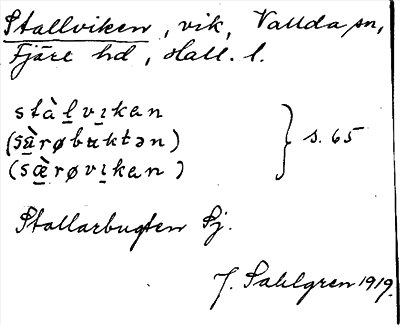 Stallviken, vik, Vallda sn,
Fjäre hd, Hall. l.
stàlvikan
(sæ̀røbuktən) } s. 65
(sæ̀røvikan)
Stallarbugten Sj.
J. Sahlgren 1919.